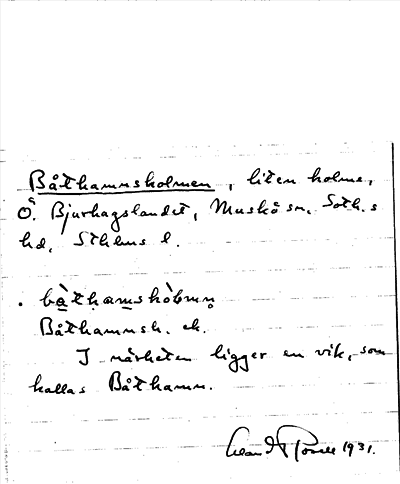 Båthamnsholmen, liten holme,
Ö. Bjurhagslandet, Muskö sn, Soth.s
hd, Sthlms l.
båthamshòlmn̥
Båthamnsh. ek.
I närheten ligger en vik, som
kallas Båthamn.
1931.